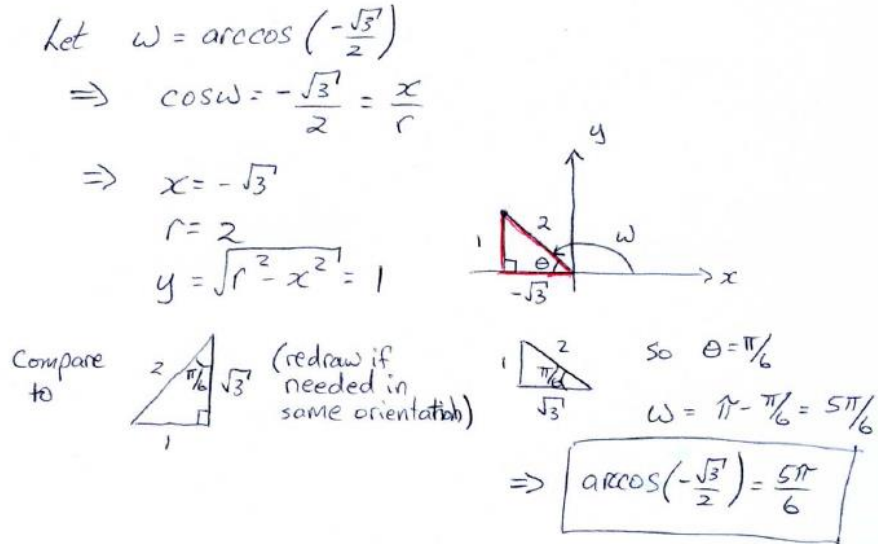 Let ω = arccos (-√3/2)
⇒ cosω = -√3/2 = x/r
⇒ x = -√3
r = 2
y = √(r² - x²) = 1
y
1 2 ω
θ
-√3
x
Compare to
2 π/6 √3
1
(redraw if needed in same orientation)
1 2
π/6
√3
so θ = π/6
ω = π - π/6 = 5π/6
⇒ arccos(-√3/2) = 5π/6